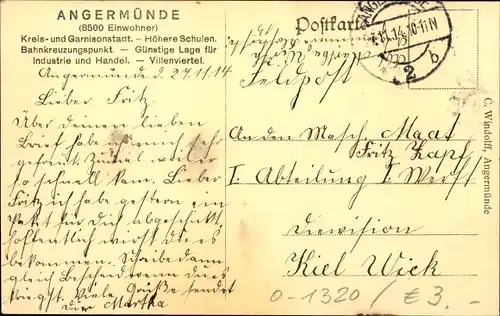 ANGERMÜNDE
(8500 Einwohner)
Kreis- und Garnisonstadt. - Höhere Schulen.
Bahnkreuzungspunkt. - Günstige Lage für
Industrie und Handel. - Villenviertel.
Angermünde d. 27.11.14
Lieber Fritz
Über deinen lieben
Brief habe ich mich sehr
gefreut. Zumal weil er
so schnell kam. Lieber
Fritz ich habe gestern ein
Paket für dich abgeschickt
hoffentlich wirst du es
bekommen. Schreibe dann
gleich Bescheid wenn du es
kriegst. Viele Grüße sendet
dir Martha
Postkarte
Feldpost
An den Masch. Maat
Fritz Zapf
I. Abteilung I. Werft
Division
Kiel Wick
11.14.10-11N
2 b
C. Windolff, Angermünde
0-1320 / € 3.-